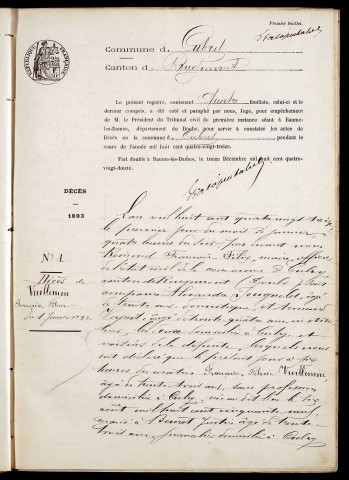 Premier feuillet.
Commune d
Canton d
Le présent registre, contenant feuillets, celui-ci et le
dernier compris, a été coté et paraphé par nous, Juge, pour empêchement
de M. le Président du Tribunal civil de première instance séant à Baume-
les-Dames, département du Doubs, pour servir à constater les actes de
Décès en la commune d pendant le
cours de l'année mil huit cent quatre-vingt-treize.
Fait double à Baume-les-Dames, le treize Décembre mil huit cent quatre-
vingt-douze.
DÉCÈS
1893
N° 1
Décès de
Vuillemin
François
du 1er janvier 1893
L'an mil huit cent quatre vingt treize
le premier jour du mois de janvier, à
quatre heures du soir, par devant nous
Raymond François maire, officier
de l'état civil de la commune de Cubry
canton de Rougemont (Doubs) sont
comparus
de trente ans, domestique et
Joseph, âgé de trente quatre ans,
domicilié à Cubry et
voisins de la défunte, lesquels nous
ont déclaré que le présent jour à six
heures du matin, François Vuillemin,
âgé de trente trois ans, sans profession
domicilié à Cubry, né au dit lieu le six
août mil huit cent cinquante neuf,
marié à âgée de trente-
trois ans, journalière domiciliée à Cubry